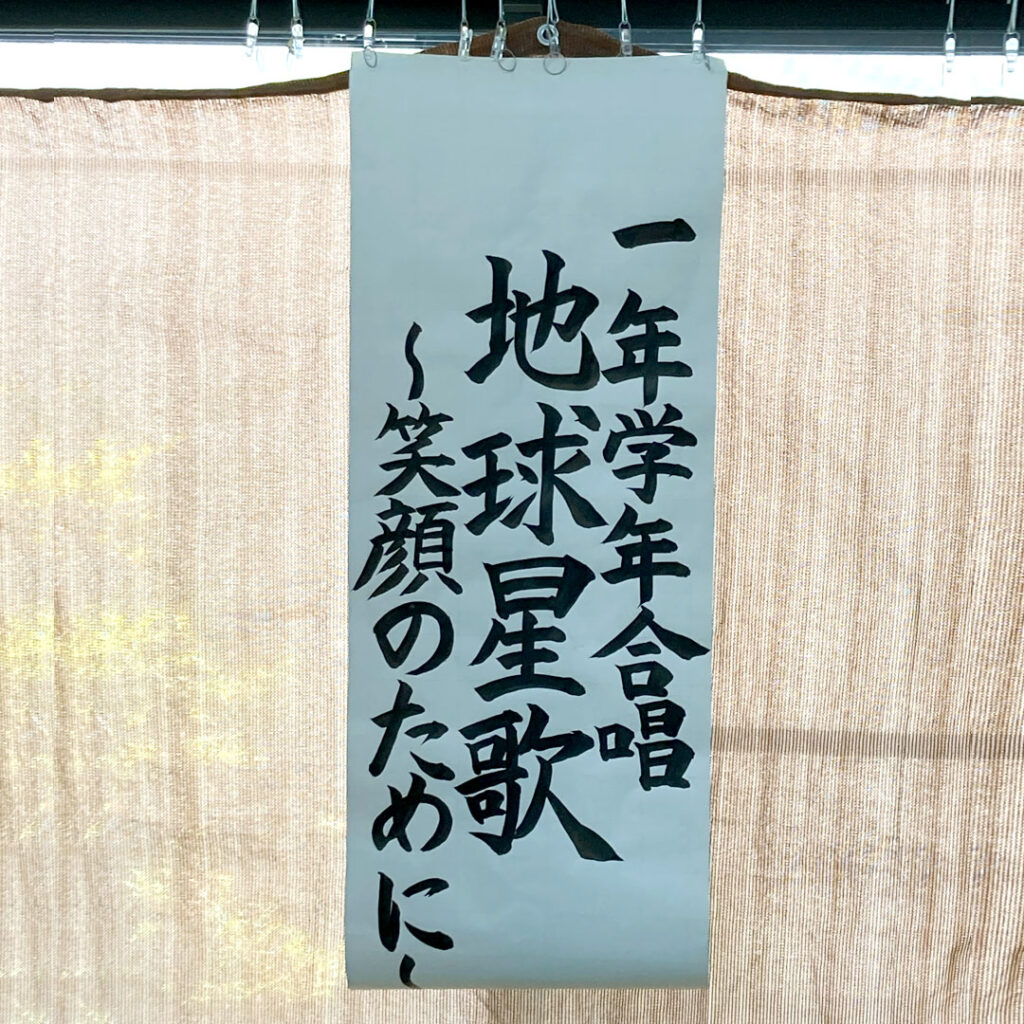 一年学年合唱
地球星歌
～笑顔のために～